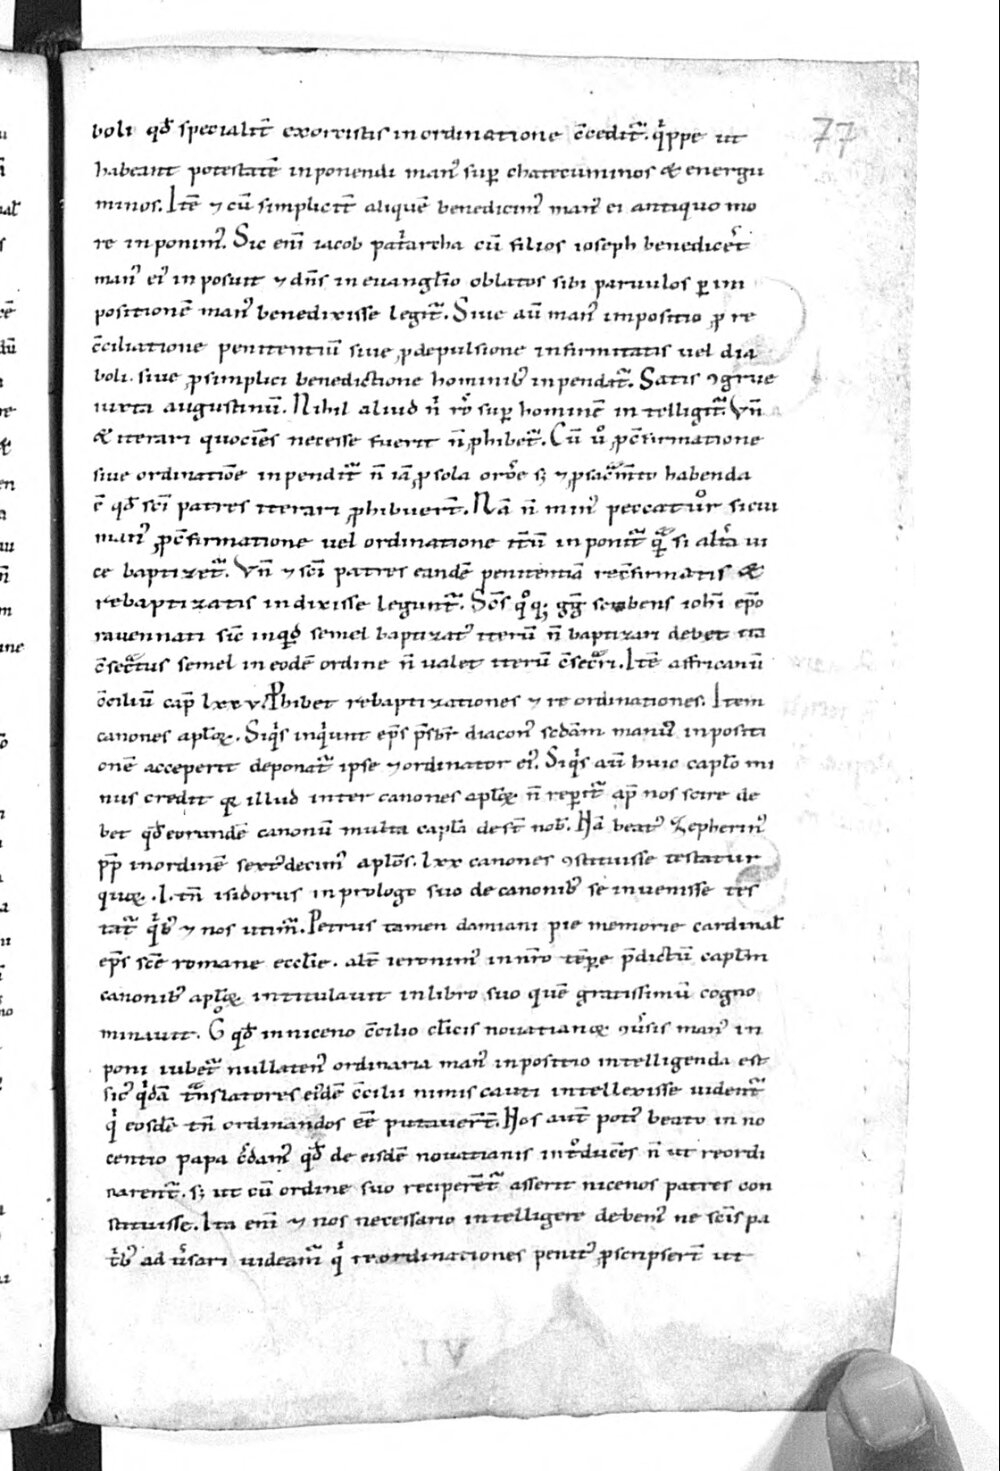 77
boli qđ specialit̄ exorcistis in ordinatione c̄cedit᷑. q͛ppe ut
habeant potestatē inponendi man᷒ sup̄ chatecuminos & energu
minos. Itē ⁊ cū simplicit̄ aliquē benedicim᷒ man᷒ ei antiquo mo
re inponim᷒. Sic eni̅ iacob pat͛archa cū filios ioseph benediceret
man᷒ ei᷒ inposuit ⁊ dn̄s in euangl̄io oblatos sibi paruulos ꝑ im
positionē man᷒ benedixisse legit᷑. Siue aū man᷒ impositio ꝓ re
c̄ciliatione penitentiū siue ꝓ depulsione infirmitatis uel dia
boli. siue ꝓ simplici benedictione hominib᷒ inpendat᷑. Satis ↄgrue
iuxta augustinū. Nihil aliud n̄ sup̄ hominē intelligit᷑. Vn̄
& iterari quociēs necesse fuerit n̄ ꝓhibet᷑. Cū uͦ ꝓ c̄firmatione
siue ordinatiōe inpendit᷑ n̄ iā ꝓ sola or̄oe sꝫ ⁊ ꝓ sac͛mto habenda
ē qđ sc̄i patres iterari ꝓhibuer̄t. Nā n̄ min᷒ peccatur si cui
man᷒ ꝓ c̄firmatione uel ordinatione it̄ū inponit᷑ quā si alt͛a ui
ce baptizet᷑. Vn̄ ⁊ sc̄i patres eandē penitentiā rec̄firmatis &
rebaptizatis indixisse legunt᷑. Sc̄s qͦqꝫ gḡ scribens ioh̄i ep̄o
rauennati sic̄ inquid semel baptizat᷒ iterū n̄ baptizari debet ita
c̄secratus semel in eodē ordine n̄ ualet iterū c̄secrari. Itē affricanū
c̄ciliū cap̄ lxxv. Phibet rebaptizationes ⁊ reordinationes. Item
canones apl̄oꝝ. Siq͛s inq͛unt ep̄s p̄sb̄r diacon᷒ sc̄dam manus inpositi
onē acceperit deponat᷑ ipse ⁊ ordinator ei᷒. Siq͛s aū huic capl̄o mi
nus credit quia illud inter canones apl̄oꝝ n̄ rep̄it᷑ ap̄ nos scire de
bet qđ eorundē canonū multa capl̄a des̄t nob᷒. Nā beat᷒ Zepherin᷒
pp̄ in ordinē sext᷒decim᷒ apl̄os. lxx canones ↄstituisse testatur
quoꝝ .l. tn̄ isidorus in prologo suo de canonib᷒ se inuenisse tes
tat᷑ q͛b᷒ ⁊ nos utim᷑. Petrus tamen damiani pie memorie cardinal̄
ep̄s sc̄e romane eccl̄ie. alt̄ ieronim᷒ in nr̄o tēpore p̄dictū capl̄m
canonib᷒ apl̄oꝝ intitulauit in libro suo quē gratissimū cogno
minauit. G͛ qđ in niceno c̄cilio cl̄icis nouatianoꝝ ↄu͛sis man᷒ in
poni iubet᷑ nullaten᷒ ordinaria man᷒ inpositio intelligenda est
sic᷒ q͛dā translatores ei᷒dē c̄cilii nimis cauti intellexisse uident᷑
q͛ eosdē tn̄ ordinandos eē putauer̄t. Nos aut̄ poti᷒ beato inno
centio papa c͛dam᷒ qđ de eisdē nouatianis introducēs n̄ ut reordi
narent᷑. sꝫ ut cū ordine suo reciperent᷑ asserit nicenos patres con
stituisse. Ita eni̅ ⁊ nos necessario intelligere debem᷒ ne sc̄is pa
t͛b᷒ aduersari uideam᷑ q͛ reordinationes penit᷒ ꝓscripser̄t ut
VI.